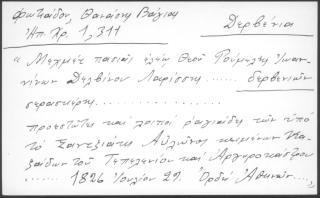 Φωτιάδου, Θανάσης Βάγιας
Ηπ. Χρ. 1, 311
Δερβένια
" Μεχμέτ πασιάς ελέω Θεού Ρούμελης Ιωαν-
νίνων Δελβίνου Λαρίσσης ...... δερβενιών
σερασκέρης.....
προεστώτες και λοιποί ραγιάδες των υπό
το Σαντζιάκι Αυλώνος κειμένων Κα-
ζαΐδων του Τεπελενίου και Αργυροκάστρου
...... 1826 Ιουλίου 29. Ορδί Αθηνών....,